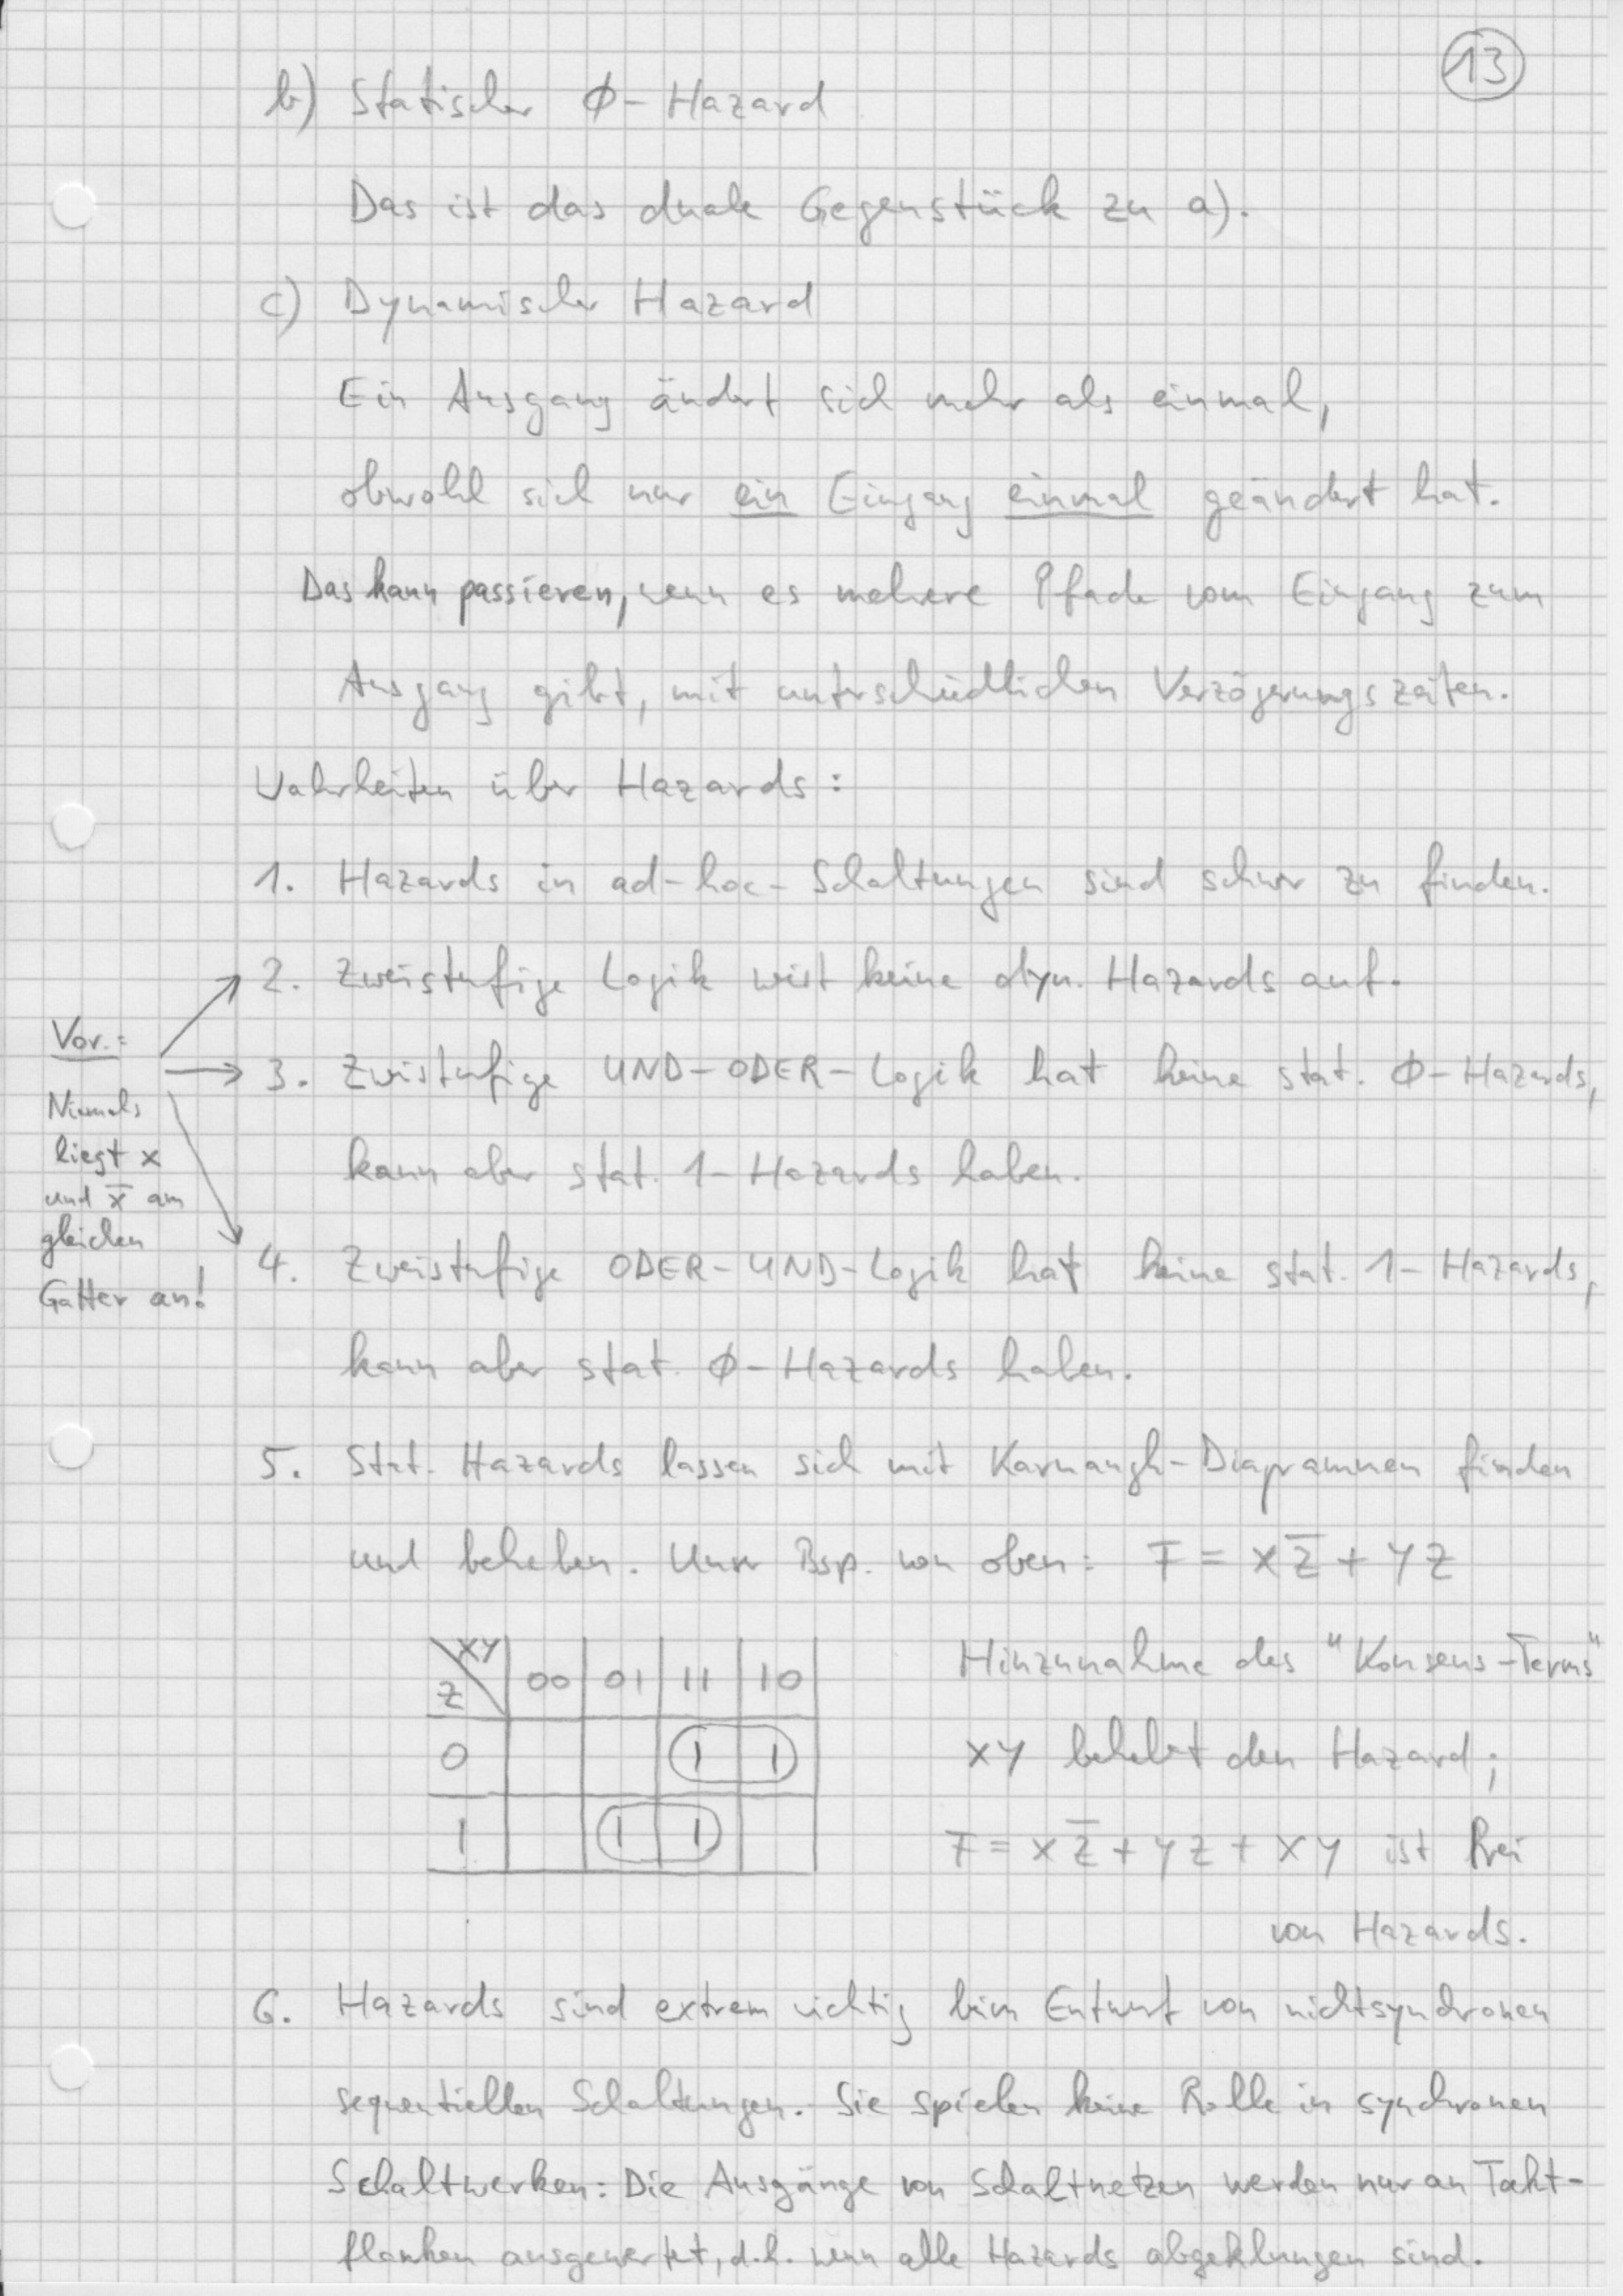 13
b) Statischer ϕ-Hazard
Das ist das duale Gegenstück zu a).
c) Dynamischer Hazard
Ein Ausgang ändert sich mehr als einmal,
obwohl sich nur ein Eingang einmal geändert hat.
Das kann passieren, wenn es mehrere Pfade vom Eingang zum
Ausgang gibt, mit unterschiedlichen Verzögerungszeiten.
Wahrheiten über Hazards:
1. Hazards in ad-hoc-Schaltungen sind schwer zu finden.
2. Zweistufige Logik weist keine dyn. Hazards auf.
3. Zweistufige UND-ODER-Logik hat keine stat. ϕ-Hazards,
kann aber stat. 1-Hazards haben.
Vor.:
Niemals
liegt x
und x̅ am
gleichen
Gatter an!
4. Zweistufige ODER-UND-Logik hat keine stat. 1-Hazards,
kann aber stat. ϕ-Hazards haben.
5. Stat. Hazards lassen sich mit Karnaugh-Diagrammen finden
und beheben. Unser Bsp. von oben: F = X Z̅ + Y Z
XY
Z 00 01 11 10
0 1 1
1 1 1
Hinzunahme des "Konsens-Terms"
XY behebt den Hazard;
F = X Z̅ + Y Z + X Y ist frei
von Hazards.
6. Hazards sind extrem wichtig beim Entwurf von nichtsynchronen
sequentiellen Schaltungen. Sie spielen keine Rolle in synchronen
Schaltwerken: Die Ausgänge von Schaltnetzen werden nur an Takt-
flanken ausgewertet, d.h. wenn alle Hazards abgeklungen sind.